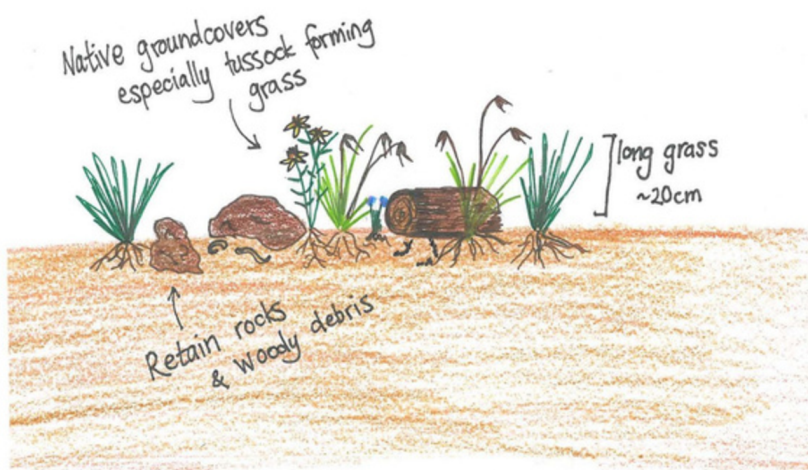 Native groundcovers
especially tussock forming
grass
long grass
~20cm
Retain rocks
& woody debris